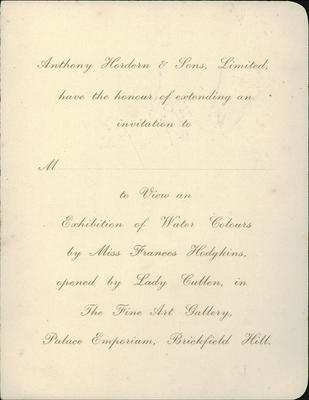 Anthony Hordern & Sons, Limited,
have the honour of extending an
invitation to
M
to View an
Exhibition of Water Colours
by Miss Frances Hodgkins,
opened by Lady Cullen, in
The Fine Art Gallery,
Palace Emporium, Brickfield Hill.